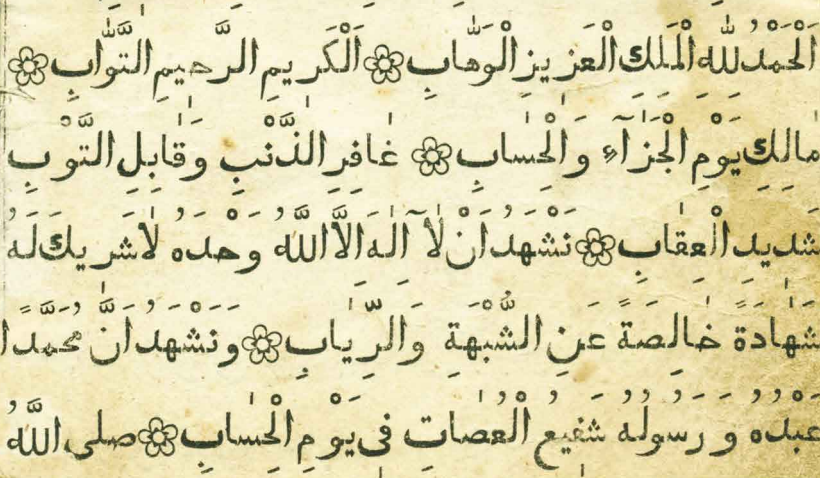 اَلْحَمْدُ لِلّٰهِ الْمَلِكِ الْعَزِيزِ الْوَهَّابِ ❀ اَلْكَرِيمِ الرَّحِيمِ التَّوَّابِ ❀
مَالِكِ يَوْمِ الْجَزَآءِ وَالْحِسَابِ ❀ غَافِرِ الذَّنْبِ وَقَابِلِ التَّوْبِ
شَدِيدِ الْعِقَابِ ❀ نَشْهَدُ اَنْ لَآ اِلٰهَ اِلَّا اللّٰهُ وَحْدَهُ لَا شَرِيكَ لَهُ
شَهَادَةً خَالِصَةً عَنِ الشُّبْهَةِ وَالرِّيَابِ ❀ وَنَشْهَدُ اَنَّ مُحَمَّدًا
عَبْدُهُ وَرَسُولُهُ شَفِيعُ الْعُصَاتِ فِى يَوْمِ الْحِسَابِ ❀ صلى اللّٰهُ